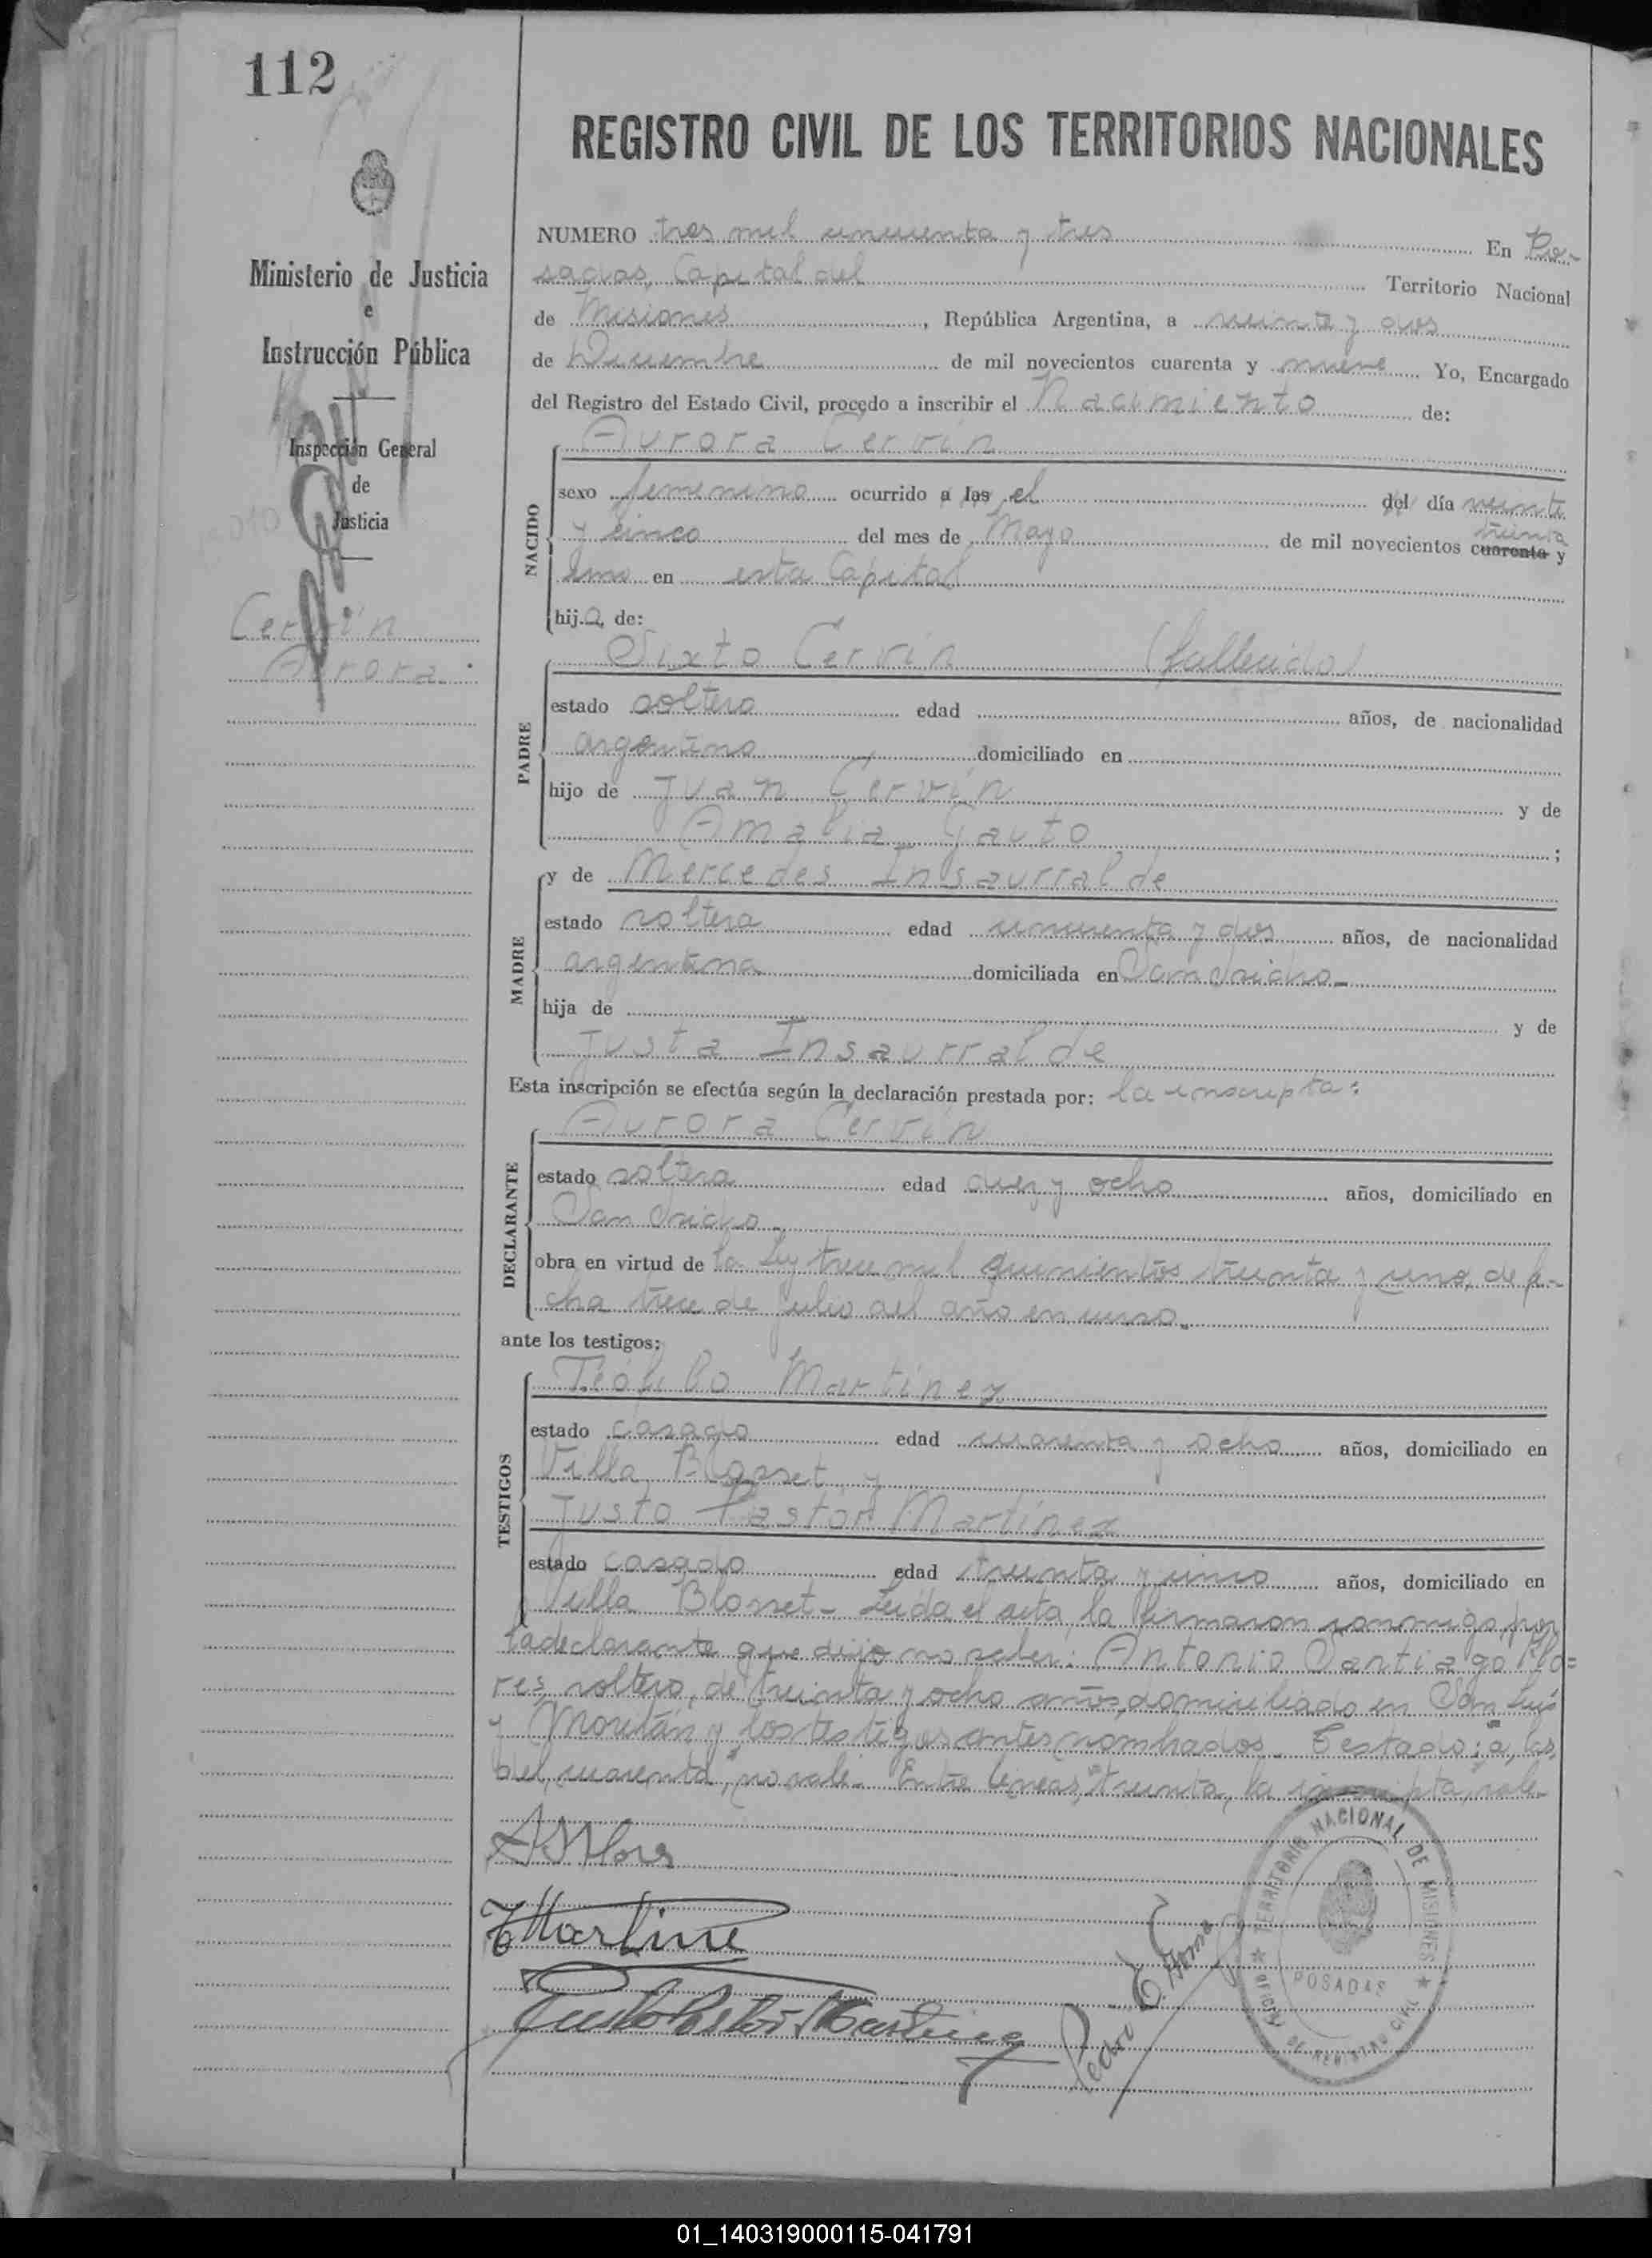 112
REGISTRO CIVIL DE LOS TERRITORIOS NACIONALES
Ministerio de Justicia
e
Instrucción Pública
Inspección General
de
Justicia
Cervín
Aurora
NUMERO tres mil cincuenta y tres En Po-
sadas, Capital del Territorio Nacional
de Misiones, República Argentina, a veinte y dos
de Diciembre de mil novecientos cuarenta y nueve Yo, Encargado
del Registro del Estado Civil, procedo a inscribir el Nacimiento de:
NACIDO
Aurora Cervín
sexo femenino ocurrido a las el del día veinte
y cinco del mes de Mayo de mil novecientos cuarenta treinta y
uno en esta Capital
hija de:
PADRE
Sixto Cervín (fallecido)
estado soltero edad años, de nacionalidad
argentino domiciliado en
hijo de Juan Cervín y de
Amalia Gauto ;
MADRE
y de Mercedes Insaurralde
estado soltera edad cincuenta y dos años, de nacionalidad
argentina domiciliada en San Isidro.-
hija de y de
Justa Insaurralde
Esta inscripción se efectúa según la declaración prestada por: la inscripta:
DECLARANTE
Aurora Cervín
estado soltera edad diez y ocho años, domiciliado en
San Isidro.-
obra en virtud de la Ley trece mil quinientos treinta y uno, de fe-
cha trece de Julio del año en curso.-
ante los testigos:
TESTIGOS
Teófilo Martinez
estado casado edad cuarenta y ocho años, domiciliado en
Villa Blosset, y
Justo Pastor Martínez
estado casado edad treinta y cinco años, domiciliado en
Villa Blosset.- Leída el acta, la firmaron conmigo, por
la declarante que dijo no saber: Antonio Santiago Flo=
res, soltero, de treinta y ocho años, domiciliado en San Luis
y Moritán y los testigos antes nombrados. Testado: a las,
del, cuarenta, no vale.- Entre líneas, treinta, la inscripta, vale-
ASFlores
TMartine
Justo Pastor Martinez
Pedro E.
TERRITORIO NACIONAL DE MISIONES
POSADAS
OFICINA DE REGISTRO CIVIL
01_140319000115-041791